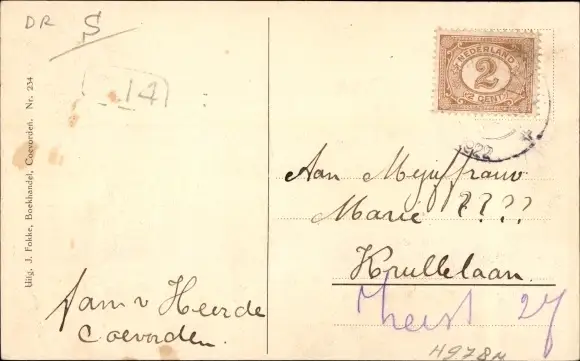 DR S
14
Uitg. J. Fokke, Boekhandel, Coevorden. Nr. 234
NEDERLAND
2
2 CENT
1922
Aan Mejuffrouw
Marie ????
Krullelaan
Zeist 27
Fam v Heerde
Coevorden.
H978